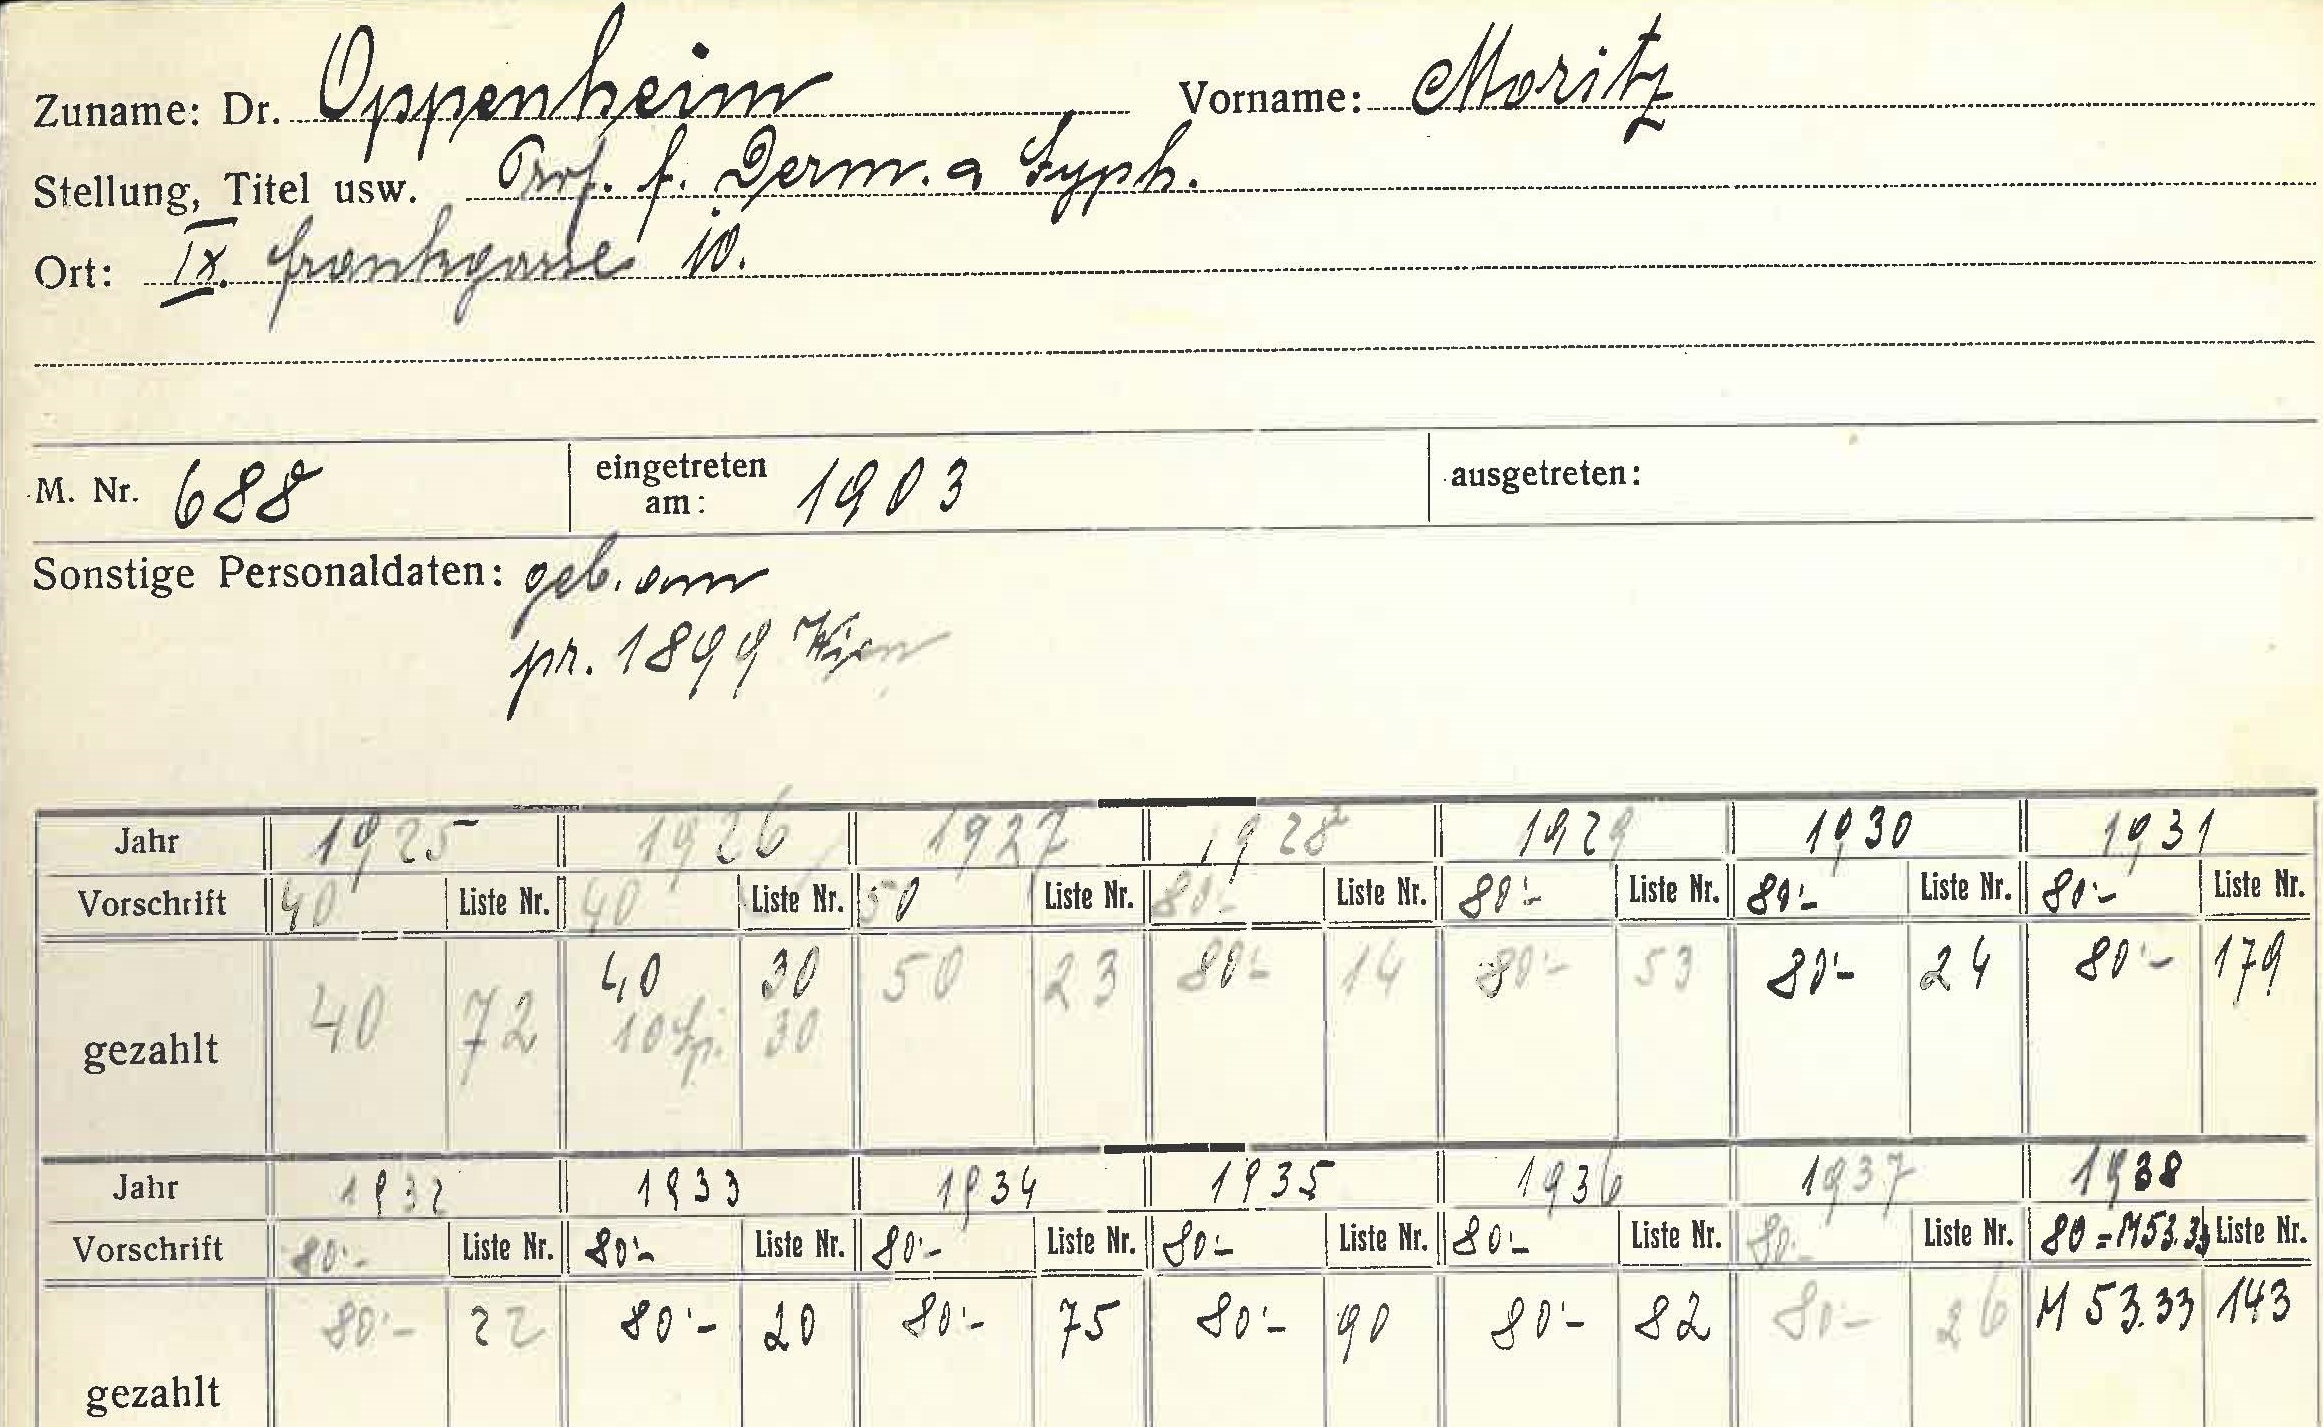 Zuname: Dr. Oppenheim Vorname: Moritz
Stellung, Titel usw. Prof. f. Derm. a Syph.
Ort: IX. Frankgasse 10.
M. Nr. 688 eingetreten am: 1903 ausgetreten:
Sonstige Personaldaten: geb. am
pr. 1899 Wien
Jahr 1925 1926 1927 1928 1929 1930 1931
Vorschrift 40 Liste Nr. 40 Liste Nr. 50 Liste Nr. 80'- Liste Nr. 80'- Liste Nr. 80'- Liste Nr. 80'- Liste Nr.
40 30 50 23 80'- 14 80'- 53 80'- 24 80'- 179
gezahlt 40 72 10 30
Jahr 1932 1933 1934 1935 1936 1937 1938
Vorschrift 80'- Liste Nr. 80'- Liste Nr. 80'- Liste Nr. 80'- Liste Nr. 80'- Liste Nr. 80'- Liste Nr. 80 = M 53.33 Liste Nr.
80'- 22 80'- 20 80'- 75 80'- 90 80'- 82 80'- 26 M 53.33 143
gezahlt